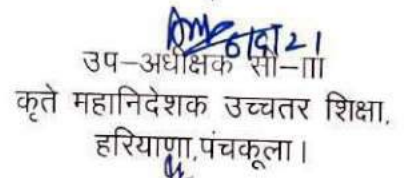 उप-अधीक्षक सी-III
कृते महानिदेशक उच्चतर शिक्षा,
हरियाणा,पंचकूला।